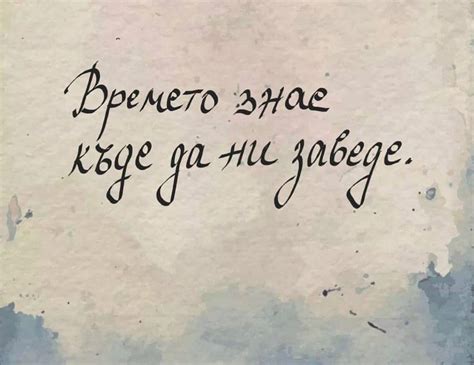 Времето знае
къде да ни заведе.